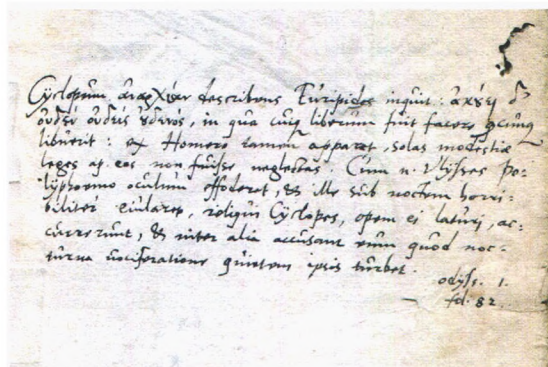 Cyclopum ἀναρχίαν describens Euripides inquit: ἀκȣ́ει δ'
οὐδὲν οὐδεὶς ȣ̓δενός, in qua cuiq; liberum fuit facere
libuerit: ex Homero tamen apparet, solas modestiæ
leges ap. eos non fuisse neglectas. Cum n. Vlysses Po-
lyphemo oculum effoderet, & ille sub noctem horri-
biliter eiularet, reliqui Cyclopes, opem ei laturi, ac-
currerunt, & inter alia accusant eum quod noc-
turna vociferatione quietem ipsis turbet.
odyss. 1.
fol. 82.